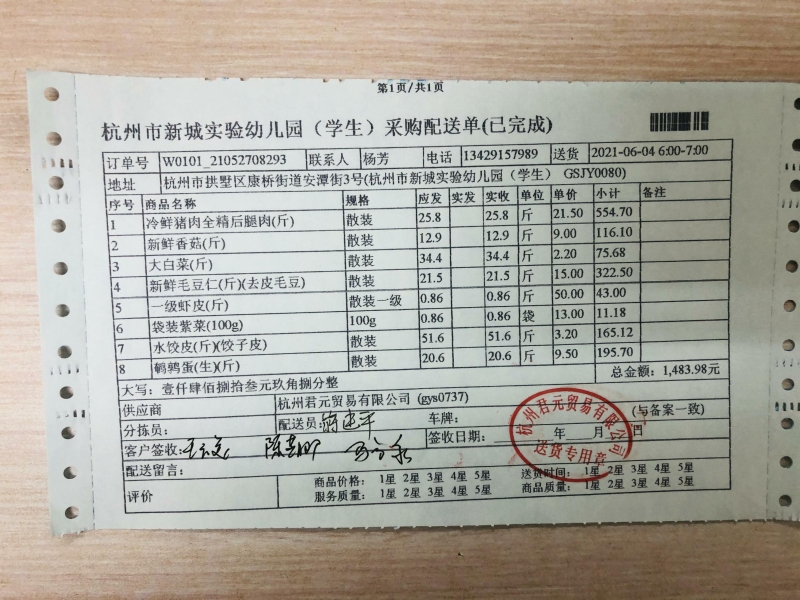 第1页/共1页
杭州市新城实验幼儿园（学生）采购配送单(已完成)
订单号 W0101_21052708293 联系人 杨芳 电话 13429157989 送货 2021-06-04 6:00-7:00
地址 杭州市拱墅区康桥街道安潭街3号(杭州市新城实验幼儿园（学生） GSJY0080)
序号 商品名称 规格 应发 实发 实收 单位 单价 小计 备注
1 冷鲜猪肉全精后腿肉(斤) 散装 25.8 25.8 斤 21.50 554.70
2 新鲜香菇(斤) 散装 12.9 12.9 斤 9.00 116.10
3 大白菜(斤) 散装 34.4 34.4 斤 2.20 75.68
4 新鲜毛豆仁(斤)(去皮毛豆) 散装 21.5 21.5 斤 15.00 322.50
5 一级虾皮(斤) 散装一级 0.86 0.86 斤 50.00 43.00
6 袋装紫菜(100g) 100g 0.86 0.86 袋 13.00 11.18
7 水饺皮(斤)(饺子皮) 散装 51.6 51.6 斤 3.20 165.12
8 鹌鹑蛋(生)(斤) 散装 20.6 20.6 斤 9.50 195.70
大写：壹仟肆佰捌拾叁元玖角捌分整 总金额：1,483.98元
供应商 杭州君元贸易有限公司 (gys0737)
分拣员： 配送员： 车牌： (与备案一致)
客户签收： 签收日期： 年 月 日
杭州君元贸易有限公司
送货专用章
配送留言：
评价 商品价格： 1星 2星 3星 4星 5星 送货时间： 1星 2星 3星 4星 5星
服务质量： 1星 2星 3星 4星 5星 商品质量： 1星 2星 3星 4星 5星